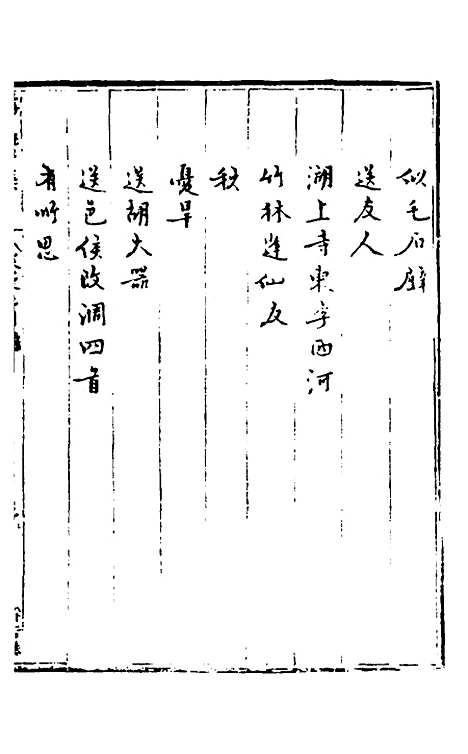 似毛石壁
送友人
湖上寺柬李西河
竹林逢仙友
秋
憂旱
送胡大器
送邑侯改調四首
有所思